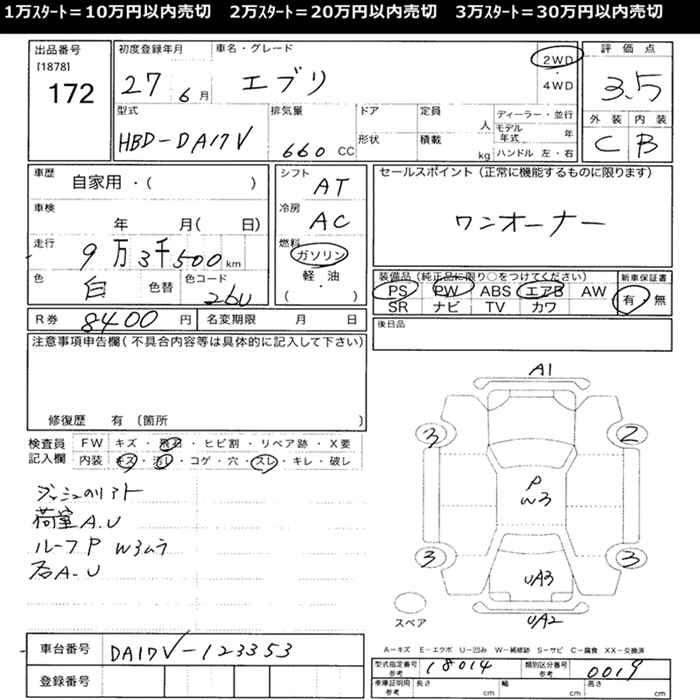 1万ｽﾀｰﾄ＝10万円以内売切　2万ｽﾀｰﾄ＝20万円以内売切　3万ｽﾀｰﾄ＝30万円以内売切
出品番号
[1878]
172
初度登録年月
27 6月
車名・グレード
エブリ
2WD
・
4WD
評価点
3.5
外装 内装
C B
型式
HBD-DA17V
排気量
660 CC
ドア
形状
定員
人
積載
kg
ディーラー・並行
モデル年式 年
ハンドル 左・右
車歴
自家用・( )
車検
年 月( 日)
走行
9万3千500 km
色
白 色替
色コード
26U
シフト
AT
冷房
AC
燃料
ガソリン
軽・油
( )
セールスポイント（正常に機能するものに限ります）
ワンオーナー
装備品（純正品に限り○をつけてください）
PS PW ABS エアB AW
SR ナビ TV カワ
新車保証書
有 無
R券 8400 円
名変期限 月 日
後日品
注意事項申告欄（不具合内容等は具体的に記入して下さい）
修復歴 有 〔箇所 〕
検査員
記入欄
FW キズ・飛石・ヒビ割・リペア跡・X要
内装 キズ・汚レ・コゲ・穴・スレ・キレ・破レ
荷室A.U
ルーフP W3ムラ
石A.U
A1
3 2
P
W3
3 3
UA3
UA2
スペア
A－キズ E－エクボ U－凹み W－補修跡 S－サビ C－腐食 XX－交換済
車台番号 DA17V-123353
登録番号
型式指定番号
参考
18014
類別区分番号
参考
0019
車庫証明用
参考
長さ cm
幅 cm
高さ cm